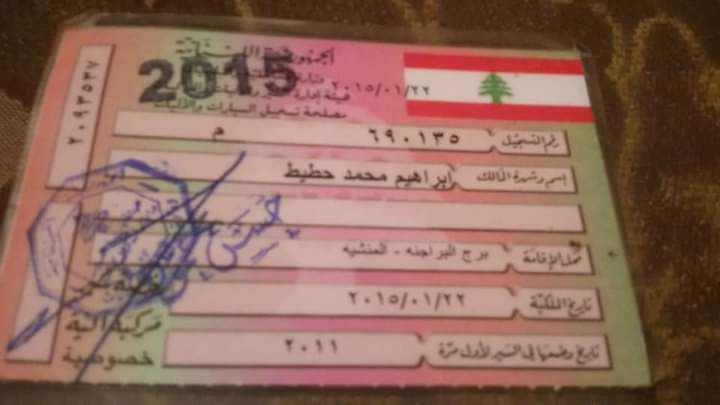 الجمهورية اللبنانية
2015
٢٠١٥/٠١/٢٢
مصلحة تسجيل السيارات والآليات
٢٠٩٣٥٣٧
رقم التسجيل ٦٩٠١٣٥ م
إسم وشهرة المالك ابراهيم محمد حطيط
محل الإقامة برج البراجنه - المنشيه
تاريخ الملكية ٢٠١٥/٠١/٢٢
تاريخ وضعها في السير لأول مرة ٢٠١١
مركبة آلية
خصوصية